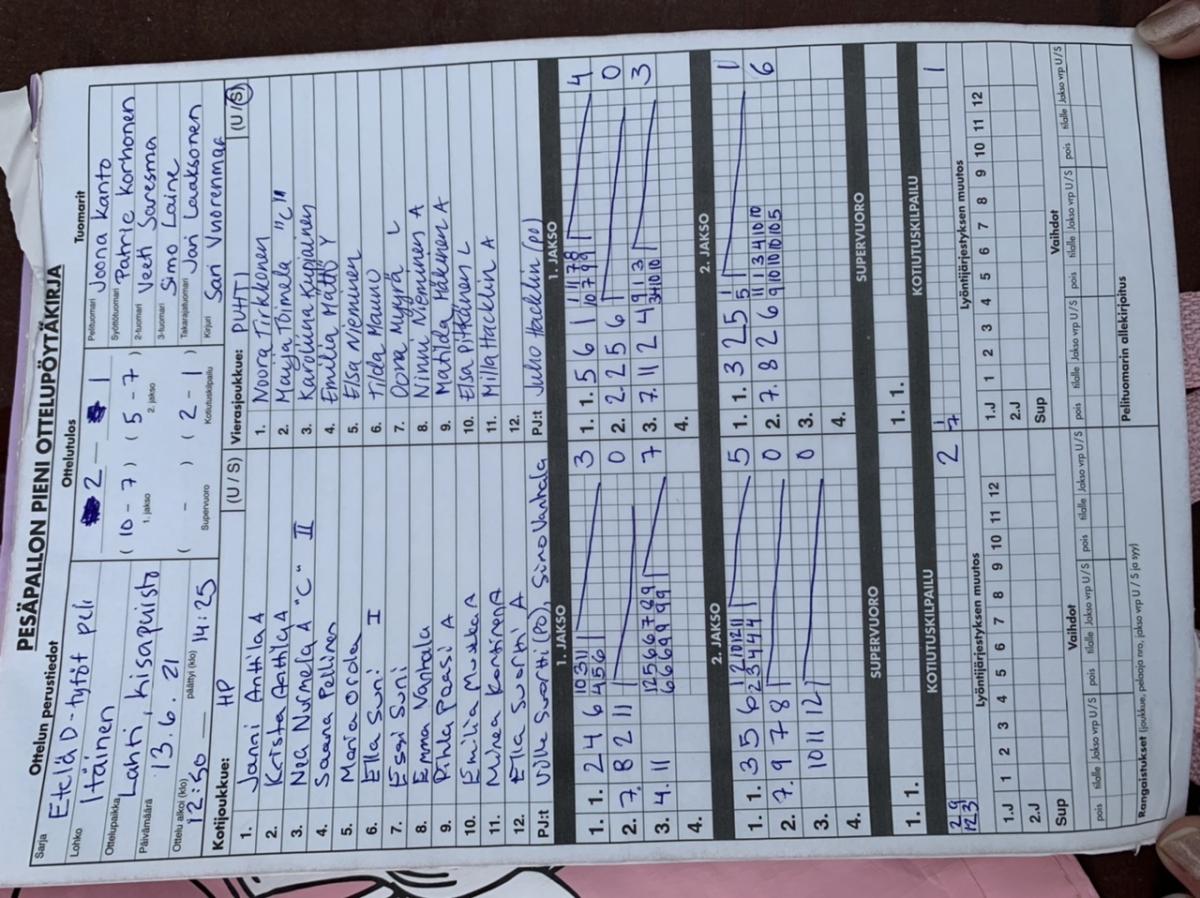 PESÄPALLON PIENI OTTELUPÖYTÄKIRJA
Ottelun perustiedot
Sarja Etelä D-tytöt peli
Lohko Itäinen
Ottelupaikka Lahti, Kisapuisto
Päivämäärä 13.6.21
Ottelu alkoi (klo) 12:50 päättyi (klo) 14:25
Ottelutulos
2 – 1
(10 – 7) (5 – 7)
1. jakso 2. jakso
( – ) (2 – 1)
Supervuoro Kotiutuskilpailu
Tuomarit
Pelituomari Joona Kanto
Syöttötuomari Patric Korhonen
2-tuomari Veeti Saresma
3-tuomari Simo Laine
Takarajatuomari Jari Laaksonen
Kirjuri Sari Vuorenmaa
Kotijoukkue: HP (U / S)
1. Janni Anttila A
2. Krista Anttila A
3. Nea Nurmela A "C" II
4. Saana Pellinen
5. Maria Orola
6. Ella Suni I
7. Essi Suni
8. Emma Vanhala
9. Pihla Paasi A
10. Emilia A
11. Minea Kontinen A
12. Ella Suortti A
PJ:t Ville Suortti (PO), Simo Vanhala
Vierasjoukkue: PUHTI (U / S)
1. Noora Tirkkonen
2. Maija Toimela "C"
3. Karoliina
4. Emilia Mättö Y
5. Elsa Nieminen
6. Tilda Mauno
7. Oona Myyrä L
8. Ninni Nieminen A
9. Matilda Häkinen A
10. Elsa Pitkänen L
11. Milla Hacklin A
12.
PJ:t Juho Hacklin (po)
1. JAKSO
1. 1. 2 4 6 10 3 11 3
4 5 6 1
2. 7. 8 2 11 0
3. 4. 11 1 2 5 6 6 7 8 9 7
6 6 6 9 9 9 9
4.
1. JAKSO
1. 1. 5 6 1 1 11 7 8 4
10 7 9 9
2. 2. 2 5 6 0
3. 7. 11 2 4 9 1 3 3
3 4 10 10
4.
2. JAKSO
1. 1. 3 5 6 1 2 10 12 11 5
2 3 4 4 4
2. 7. 9 7 8 0
3. 10 11 12 0
4.
2. JAKSO
1. 1. 3 2 5 1 1
5
2. 7. 8 2 6 11 1 3 4 10 10 6
9 10 10 10 10 5
3.
4.
SUPERVUORO
1. 1.
SUPERVUORO
1. 1.
KOTIUTUSKILPAILU
2 9 2
12 3
KOTIUTUSKILPAILU
1 1
7
Lyöntijärjestyksen muutos
1.J 1 2 3 4 5 6 7 8 9 10 11 12
2.J
Sup
Lyöntijärjestyksen muutos
1.J 1 2 3 4 5 6 7 8 9 10 11 12
2.J
Sup
Vaihdot
pois tilalle Jakso vrp U / S pois tilalle Jakso vrp U / S pois tilalle Jakso vrp U / S
Vaihdot
pois tilalle Jakso vrp U / S pois tilalle Jakso vrp U / S pois tilalle Jakso vrp U / S
Rangaistukset (joukkue, pelaaja nro, jakso vrp U / S ja syy)
Pelituomarin allekirjoitus